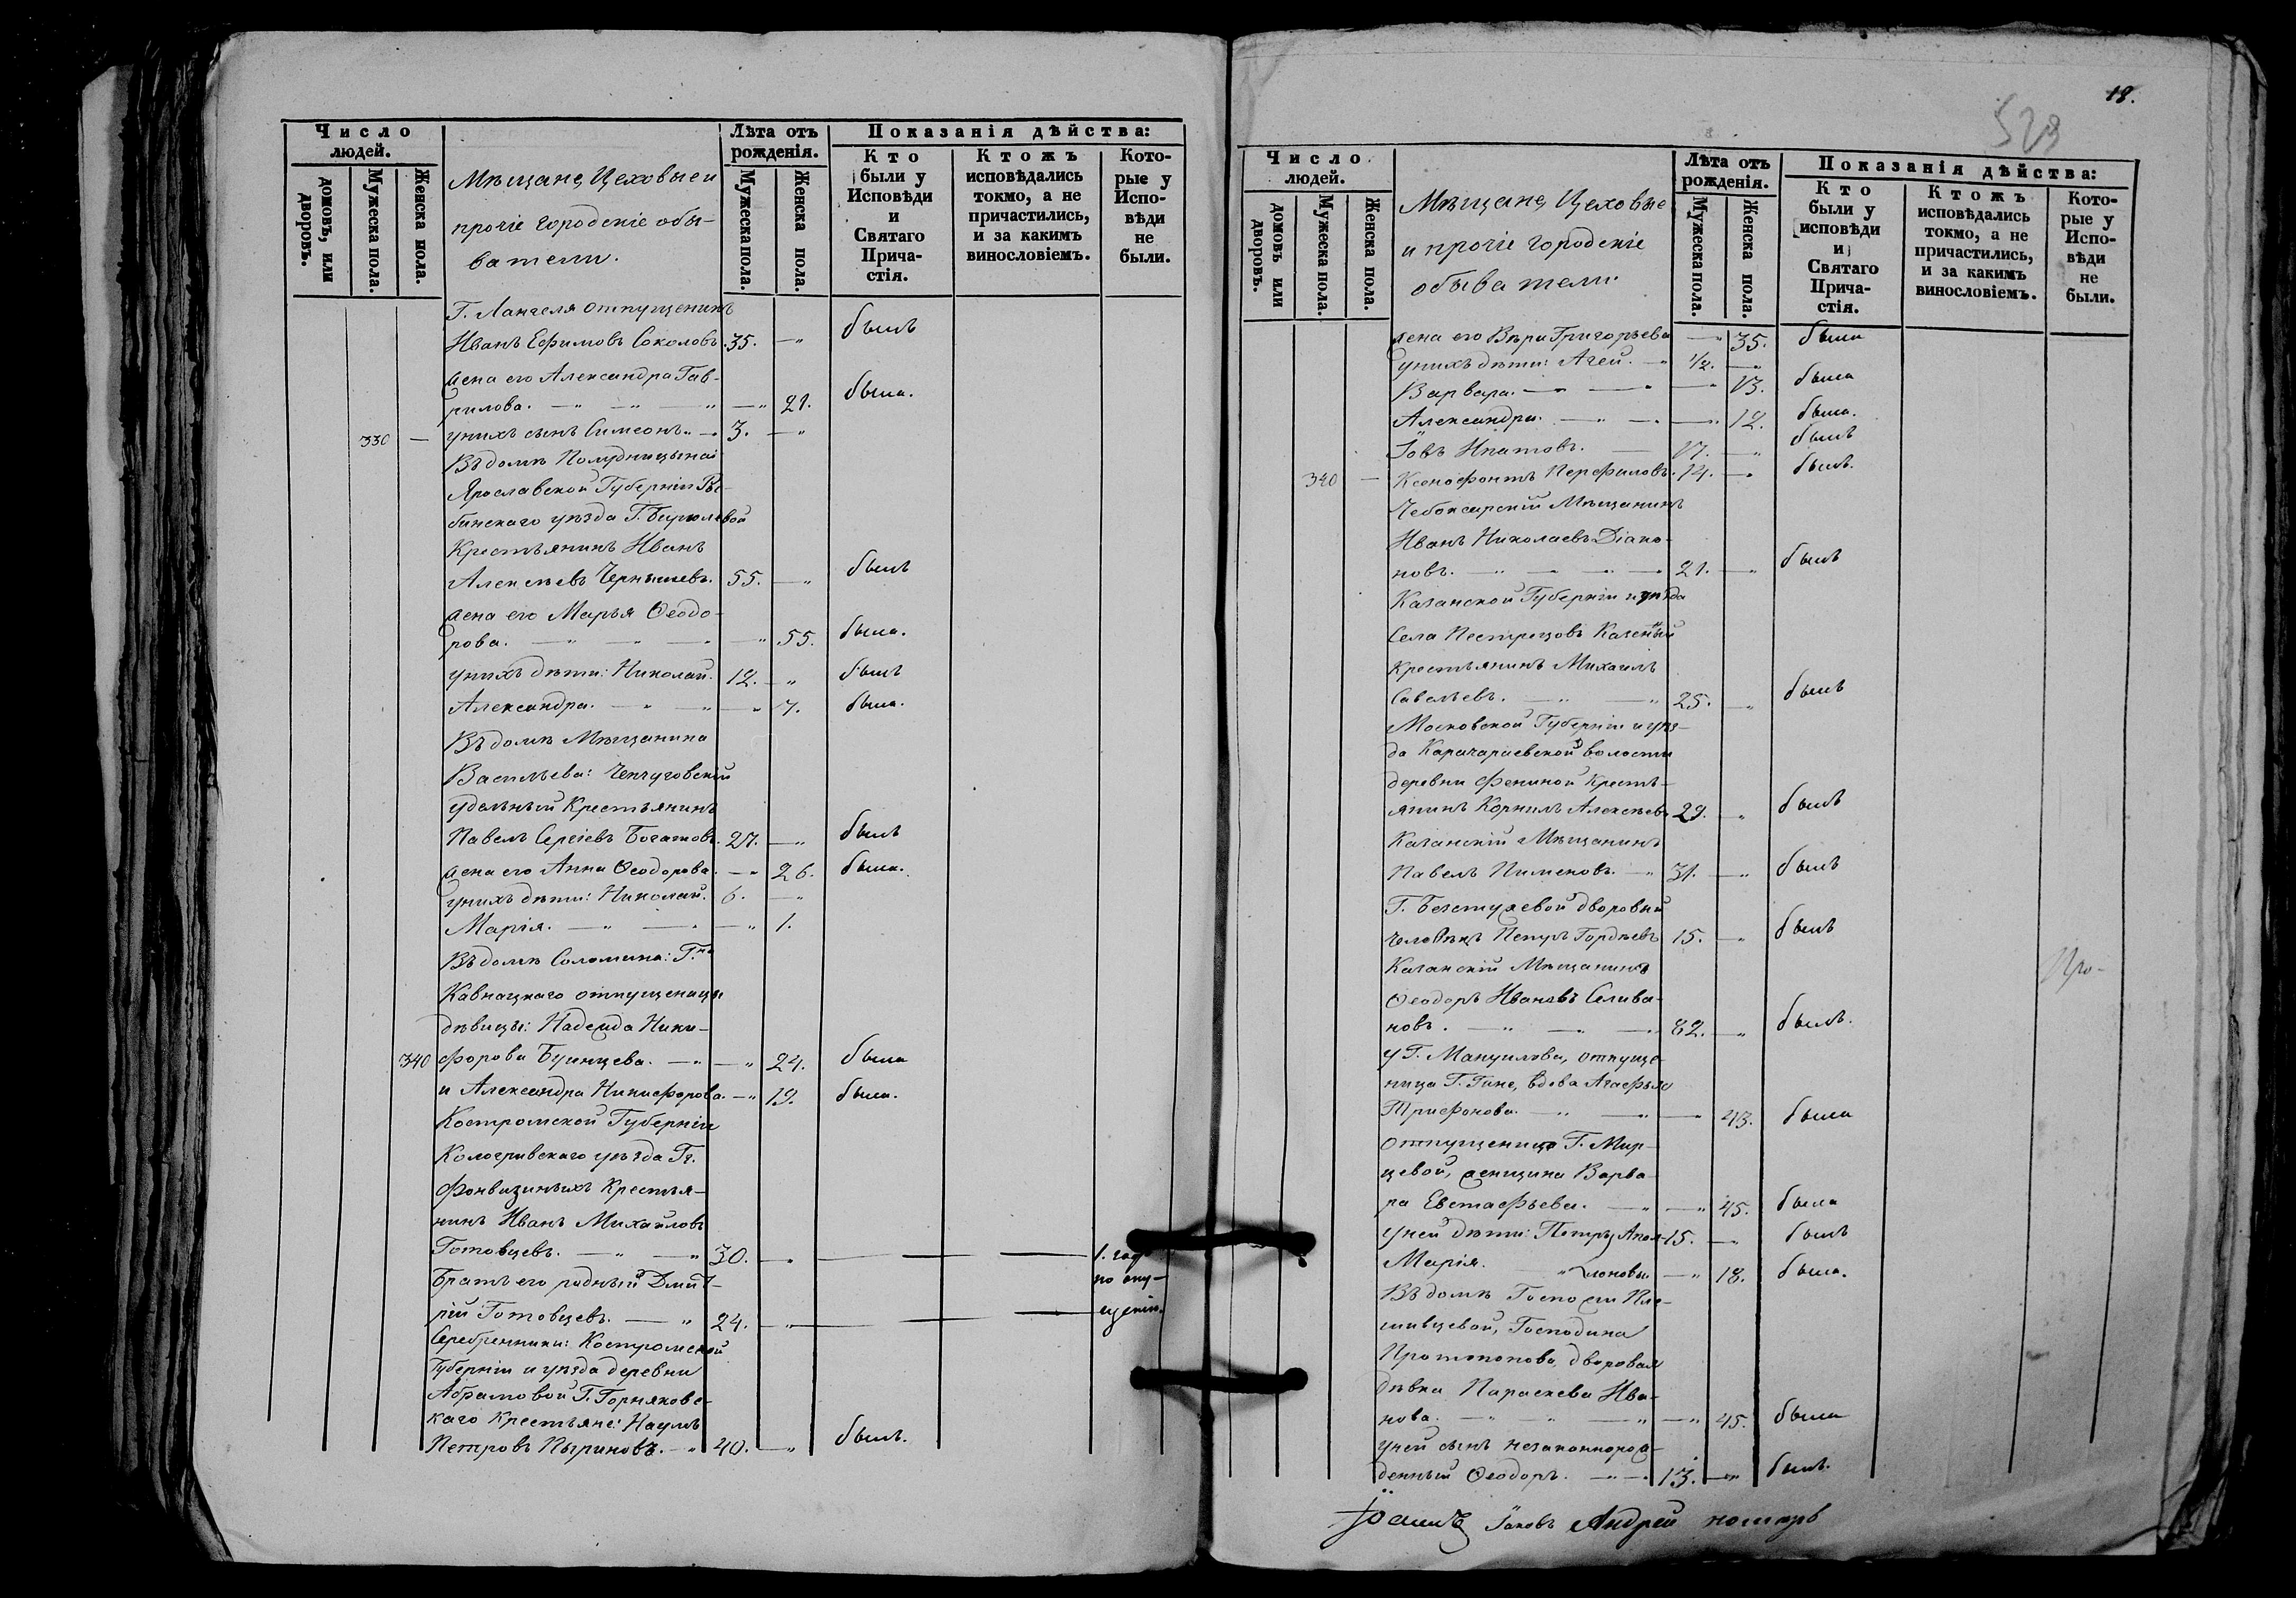 Число людей.
домовъ, или дворовъ.
Мужеска пола.
Женска пола.
Мѣщане, Цеховые и
прочіе городскіе обы-
ватели.
Лѣта отъ рожденія.
Мужеска пола.
Женска пола.
Показанія дѣйства:
Кто были у Исповѣди и Святаго Прича-стія.
Ктожъ исповѣдались токмо, а не причастились, и за какимъ винословіемъ.
Кото-рые у Испо-вѣди не были.
Г. отпущеникъ
Иванъ Ефимовъ Соколовъ. 35. — „ былъ
жена его Александра Гав-
рилова. — „ — „ — „ — „ 21. была.
330 — у нихъ сынъ Симеонъ. — 3. — „
Въ домѣ
Ярославской Губерніи Ры-
бинскаго уѣзда Г.
Крестьянинъ Иванъ
Алексѣевъ Чернышевъ. 55. — „ былъ
жена его Марья Ѳеодо-
рова. — „ — „ — „ — „ 55. была.
у нихъ дѣти: Николай. 12. — „ былъ
Александра. — „ — „ — „ 7. была.
Въ домѣ Мѣщанина
Васильева:
удѣльный Крестьянинъ
Павелъ Сергіевъ Богатовъ. 27. — „ былъ
жена его Анна Ѳеодорова. — „ 26. была.
у нихъ дѣти: Николай. 6. — „
Марія. — „ — „ — „ 1.
Въ домѣ Соломина: Г.на
отпущеницы
дѣвицы: Надежда Ники-
340 форова Буинцева. — „ — „ 24. была
и Александра Никифорова. — „ 19. была.
Костромской Губерніи
Кологривскаго уѣзда Гг.
Фонвизиныхъ Крестья-
нинъ Иванъ Михайловъ
Готовцевъ. — „ — „ 30. — „ — — — 1. годъ
Братъ его родный Дмит- по опу-
рій Готовцевъ. — „ 24. — „ — — — щенію.
Серебренники: Костромской
Губерніи и уѣзда деревни
Абрамовой Г. Горняковс-
каго Крестьяне: Наумъ
Петровъ Пыриновъ. — „ 40. — „ былъ.
18.
529
Число людей.
домовъ или дворовъ.
Мужеска пола.
Женска пола.
Мѣщане, Цеховые
и прочіе городскіе
обыватели.
Лѣта отъ рожденія.
Мужеска пола.
Женска пола.
Показанія дѣйства:
Кто были у исповѣди и Святаго Прича-стія.
Ктожъ исповѣдались токмо, а не причастились, и за какимъ винословіемъ.
Кото-рые у Испо-вѣди не были.
жена его Вѣра Григорьева — „ 35. была
у нихъ дѣти: Агей. — „ 1/2. — „
Варвара. — „ — „ — „ 13. была
Александра. — „ — „ — „ 12. была.
Іовъ Ипатовъ. — 17. — „ былъ
340 — Ксенофонтъ Перфиловъ. 14. — „ былъ.
Чебоксарскій Мѣщанинъ
Иванъ Николаевъ Діако-
новъ. — „ — „ — „ 21. — „ былъ
Казанской Губерніи и уѣзда
Села Пестрецовъ Казенный
Крестьянинъ Михаилъ
Савельевъ. — „ — „ 25. — „ былъ
Московской Губерніи и уѣз-
да Карачаровской волости
деревни Фениной Кресть-
янинъ Корнилъ Алексѣевъ 29. — „ былъ
Казанскій Мѣщанинъ
Павелъ Пименовъ. — „ 31. — „ былъ
Г. Бестужевой дворовый
человѣкъ Петръ Гордѣевъ 15. — „ былъ
Казанскій Мѣщанинъ
Ѳеодоръ Ивановъ Селива-
новъ. — „ — „ — „ 82. — „ былъ.
у Г. Мануилова, отпуще-
ница Г. вдова Агафья
Трифонова. — „ — „ — „ 43. была
Отпущеница Г. Мир-
цевой, женщина Варва-
ра Евстафьева. — „ — „ 45. была
у ней дѣти: Петръ Апол- 15. — „ былъ
Марія. — „ лоновы — „ 18. была.
Въ домѣ Госпожи
Господина
Протопопова дворовая
дѣвка Параскева Ива-
нова. — „ — „ — „ — „ 45. была
у ней сынъ незаконнорож-
денный Ѳеодоръ. — „ — 13. — „ былъ.
Про-
Іоаннъ Іаковъ Андрей